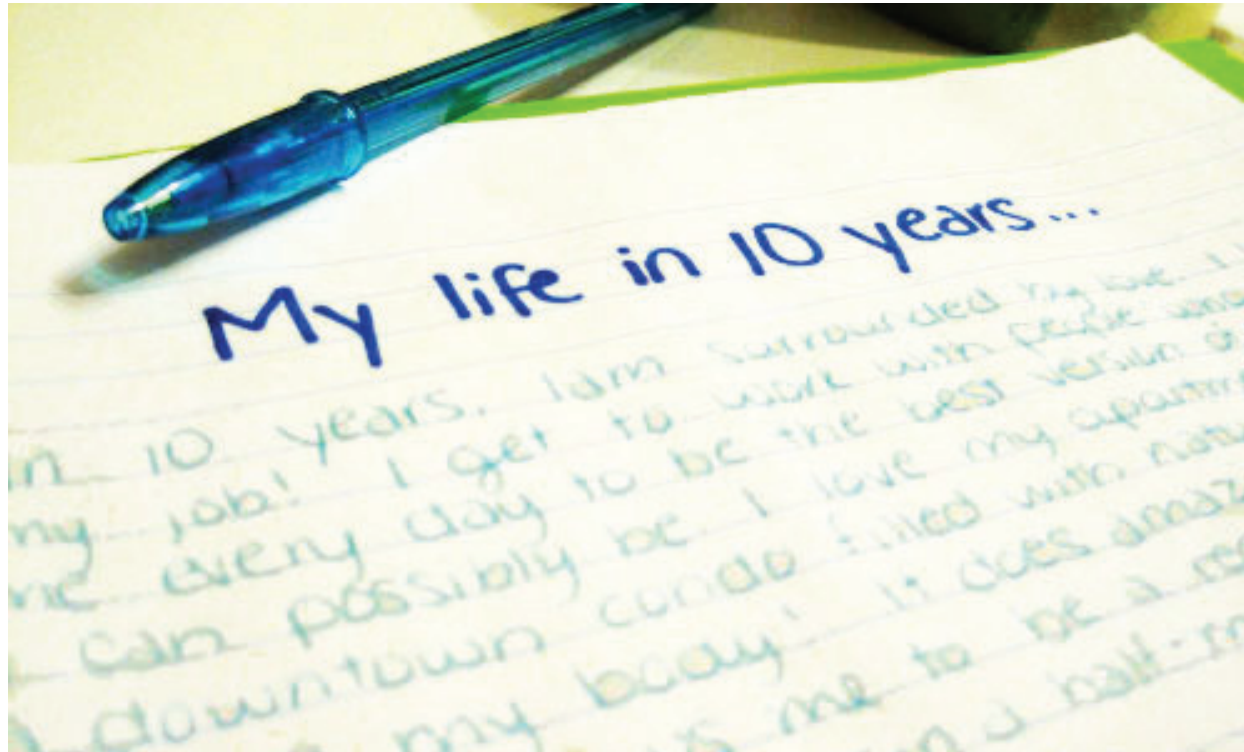 My life in 10 years...
in 10 years, I am surrounded by love. I
my job! I get to work with people who
me every day to be the best version of
I can possibly be I love my apartm
downtown condo filled with natu
my body! It does amaz
me to be a re
a half-m